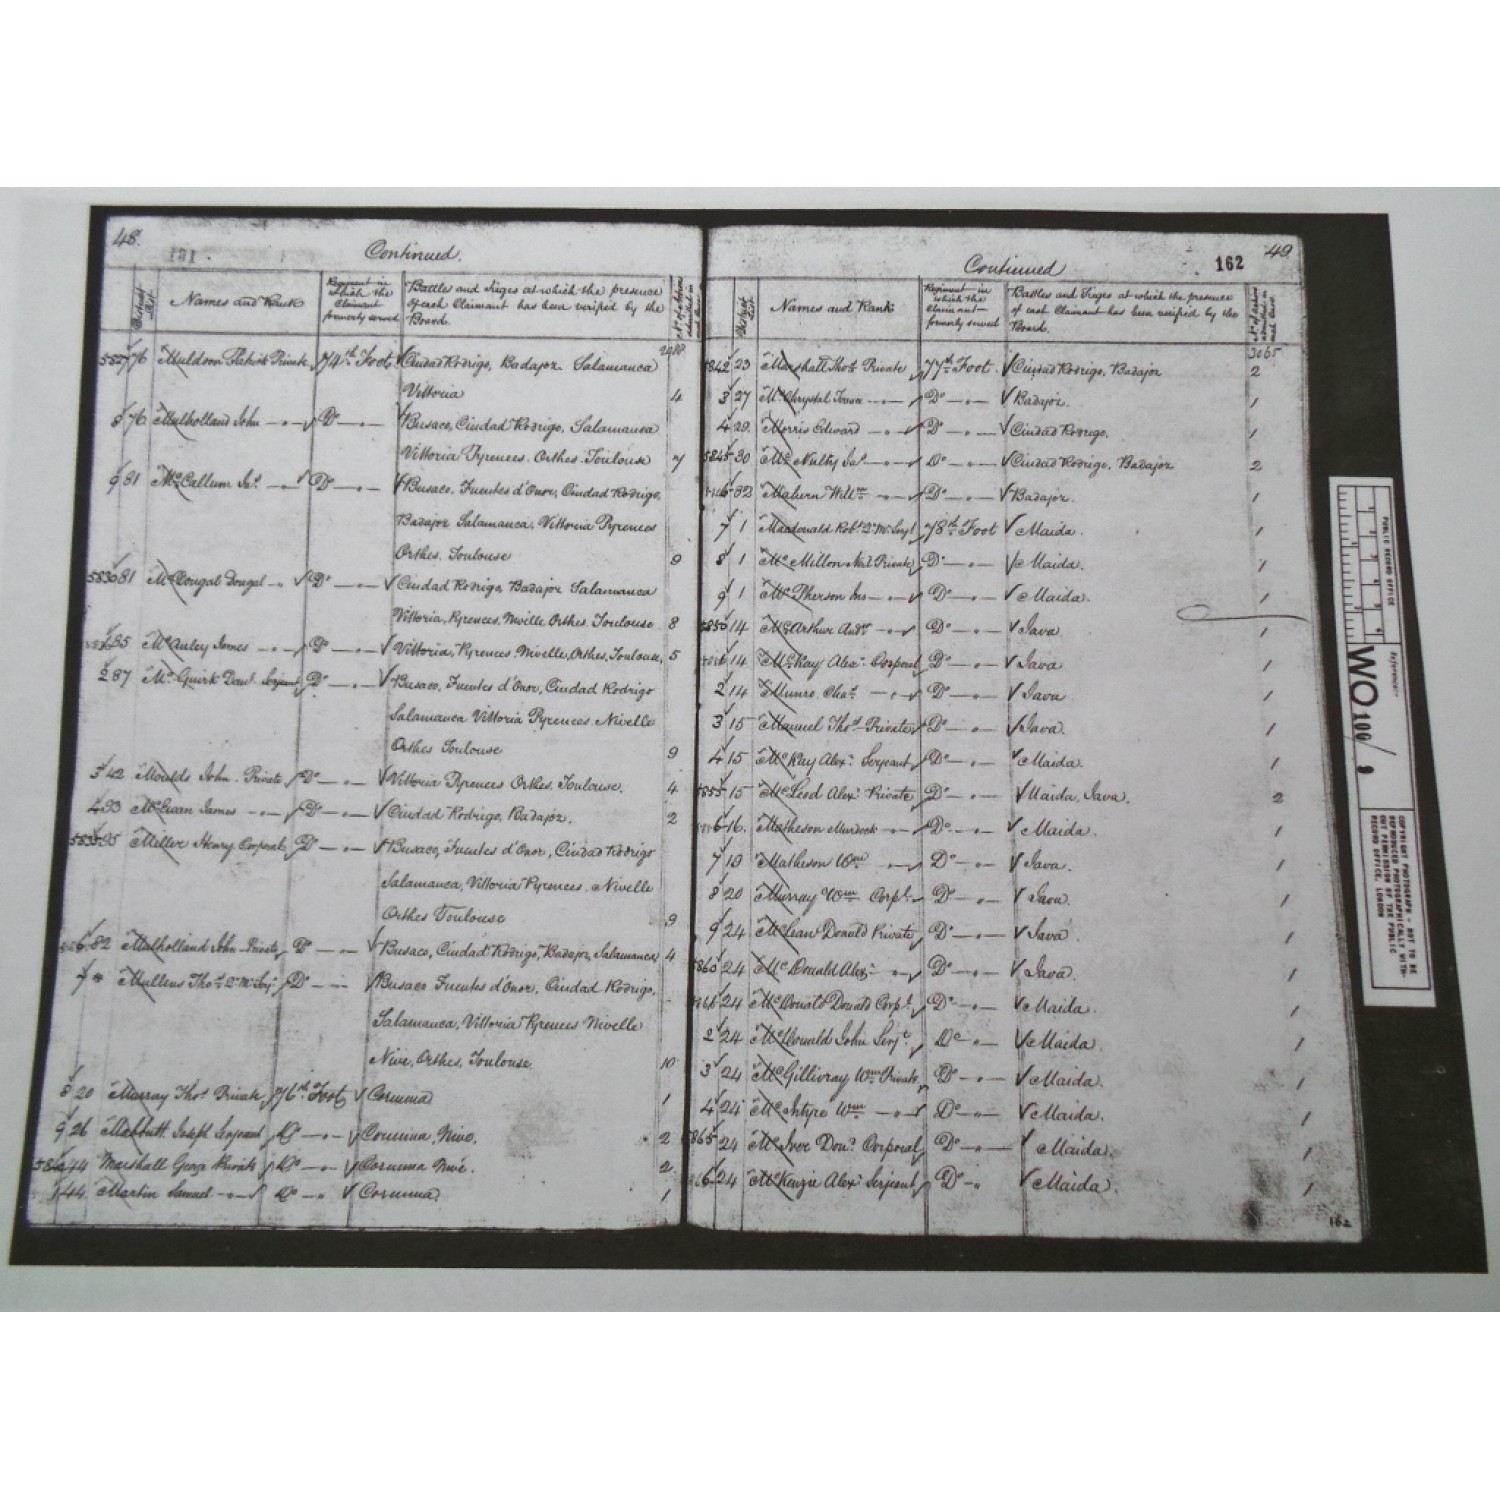 48.
Continued.
District List
Names and Rank
Regiment in which the Claimant formerly served
Battles and Sieges at which the presence of each Claimant has been verified by the Board.
No. of actions
5827 76 Muldoon Patrick Private 74th Foot Ciudad Rodrigo, Badajoz Salamanca
Vittoria 4
8 76 Mulholland John Do Busaco, Ciudad Rodrigo, Salamanca
Vittoria Pyrenees Orthes Toulouse 7
9 81 McCallum Jas. Do Busaco, Fuentes d'Onor, Ciudad Rodrigo,
Badajoz Salamanca, Vittoria Pyrenees
Orthes. Toulouse 9
5830 81 McDougal Dougal Do Ciudad Rodrigo, Badajoz Salamanca
Vittoria, Pyrenees, Nivelle Orthes Toulouse 8
85 McAuley James Do Vittoria, Pyrenees, Nivelle, Orthes, Toulouse, 5
2 87 McGuirk Serjeant Do Busaco, Fuentes d'Onor, Ciudad Rodrigo
Salamanca Vittoria Pyrenees Nivelle
Orthes Toulouse 9
3 42 Moulds John Private Do Vittoria Pyrenees Orthes. Toulouse. 4
4 93 McEwan James Do Ciudad Rodrigo, Badajoz. 2
5835 95 Miller Henry Corporal Do Busaco, Fuentes d'Onor, Ciudad Rodrigo
Salamanca, Vittoria Pyrenees. Nivelle
Orthes Toulouse 9
6 82 Mulholland John Private Do Busaco, Ciudad Rodrigo, Badajoz, Salamanca 4
7 Mullens Thos. Qr. Mr. Serjt. Do Busaco Fuentes d'Onor, Ciudad Rodrigo,
Salamanca, Vittoria Pyrenees Nivelle
Nive, Orthes, Toulouse 10
8 20 Murray Thos. Private 76th Foot Corunna 1
9 26 Joseph Serjeant Do Corunna, Nive. 2
44 Marshall George Private Do Corunna Nive. 2
1 44 Martin Samuel Do Corunna. 1
49
162
Continued
District List
Names and Rank
Regiment in which the Claimant formerly served
Battles and Sieges at which the presence of each Claimant has been verified by the Board.
No. of actions
3065
5842 23 Marshall Thos. Private 77th Foot. Ciudad Rodrigo, Badajoz 2
3 27 McChrystal Do Badajoz. 1
4 29 Morris Edward Do Ciudad Rodrigo, 1
5845 30 McNulty Jas. Do Ciudad Rodrigo, Badajoz 2
6 32 Willm. Do Badajoz. 1
7 1 Macdonald Robt. Qr. Mr. Serjt 78th Foot Maida. 1
8 1 McMillon Neil Private Do Maida. 1
9 1 McPherson Do Maida. 1
5850 14 McArthur Andw. Do Java 1
14 McKay Alexr. Corporal Do Java 1
2 14 Munro Do Java 1
3 15 Manuel Thos. Private Do Java. 1
4 15 McKay Alexr. Serjeant Do Maida. 1
5855 15 McLeod Alexr. Private Do Maida, Java. 2
6 16. Matheson Murdock Do Maida. 1
7 19 Matheson Wm Do Java. 1
8 20 Murray Wm Corpl. Do Java. 1
9 24 McLean Donald Private Do Java. 1
5860 24 McDonald Alexr. Do Java. 1
24 McDonald Donald Corpl. Do Maida. 1
2 24 McDonald John Serjt. Do Maida. 1
3 24 McGillivray Wm Private Do Maida. 1
4 24 McIntyre Wm Do Maida. 1
5865 24 McIver Corporal Do Maida. 1
6 24 McKenzie Alexr. Serjeant Do Maida. 1
162
PUBLIC RECORD OFFICE
Reference:-
WO 100/ 9
COPYRIGHT PHOTOGRAPH - NOT TO BE
REPRODUCED PHOTOGRAPHICALLY WITH-
OUT PERMISSION OF THE PUBLIC
RECORD OFFICE, LONDON